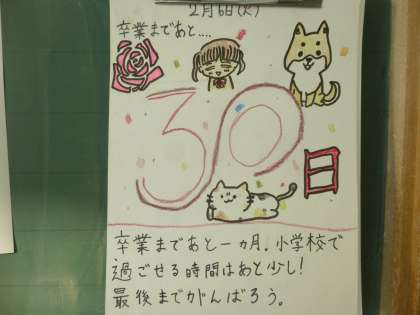 2月6日(火)
卒業まであと....
30
日
卒業まであと一ヵ月。小学校で
過ごせる時間はあと少し!
最後までがんばろう。